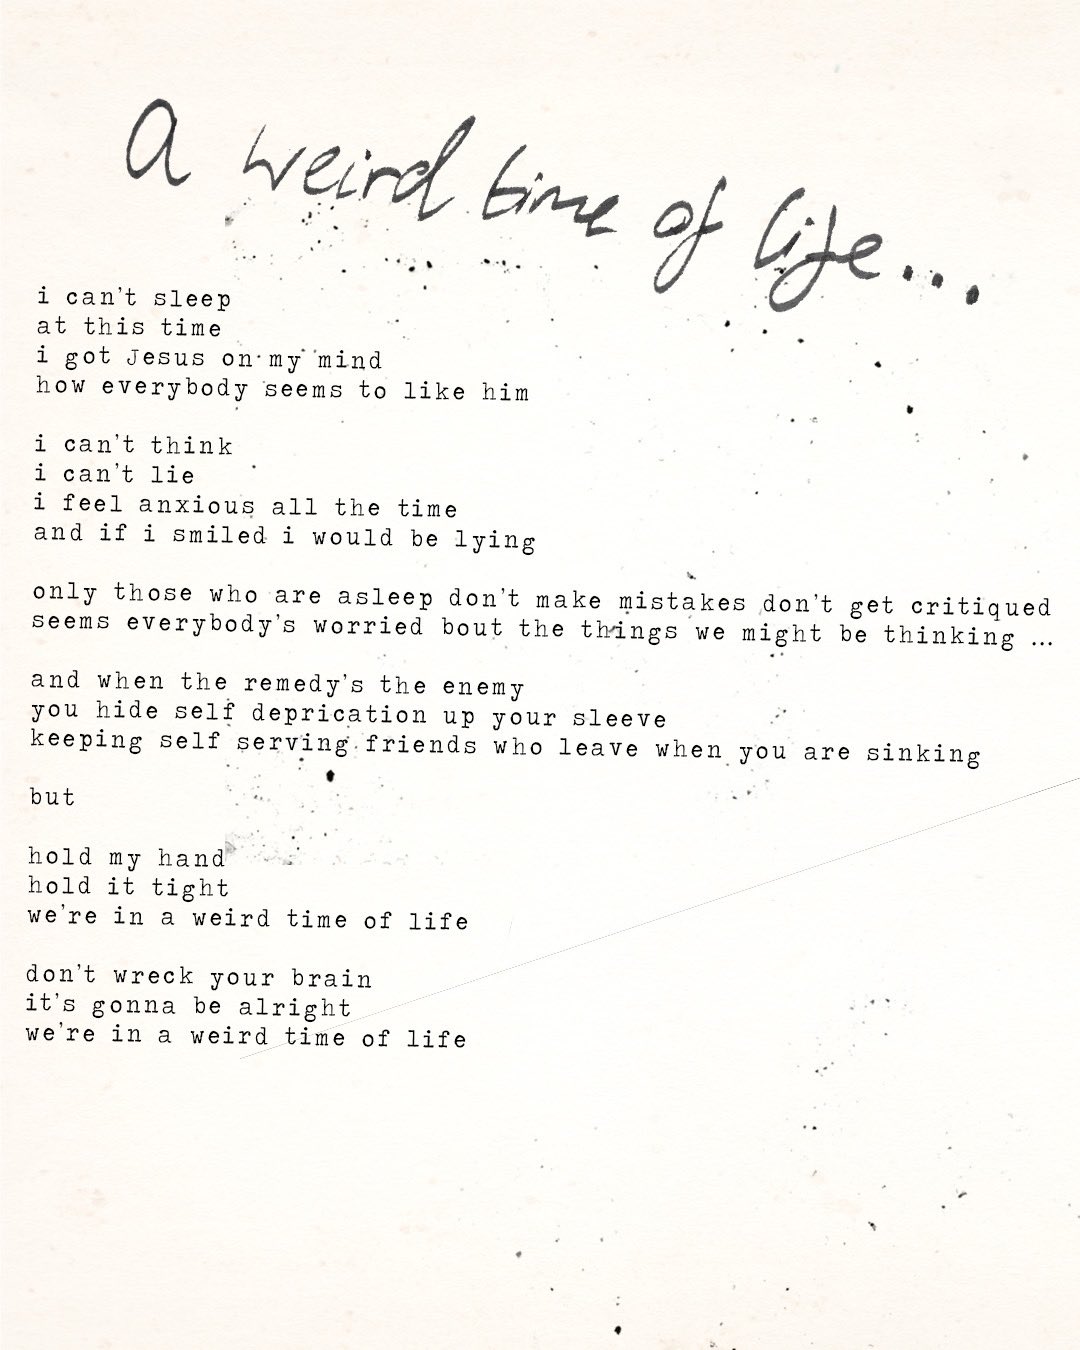 A weird time of life...
i can't sleep
at this time
i got Jesus on my mind
how everybody seems to like him
i can't think
i can't lie
i feel anxious all the time
and if i smiled i would be lying
only those who are asleep don't make mistakes don't get critiqued
seems everybody's worried bout the things we might be thinking ...
and when the remedy's the enemy
you hide self deprication up your sleeve
keeping self serving friends who leave when you are sinking
but
hold my hand
hold it tight
we're in a weird time of life
don't wreck your brain
it's gonna be alright
we're in a weird time of life